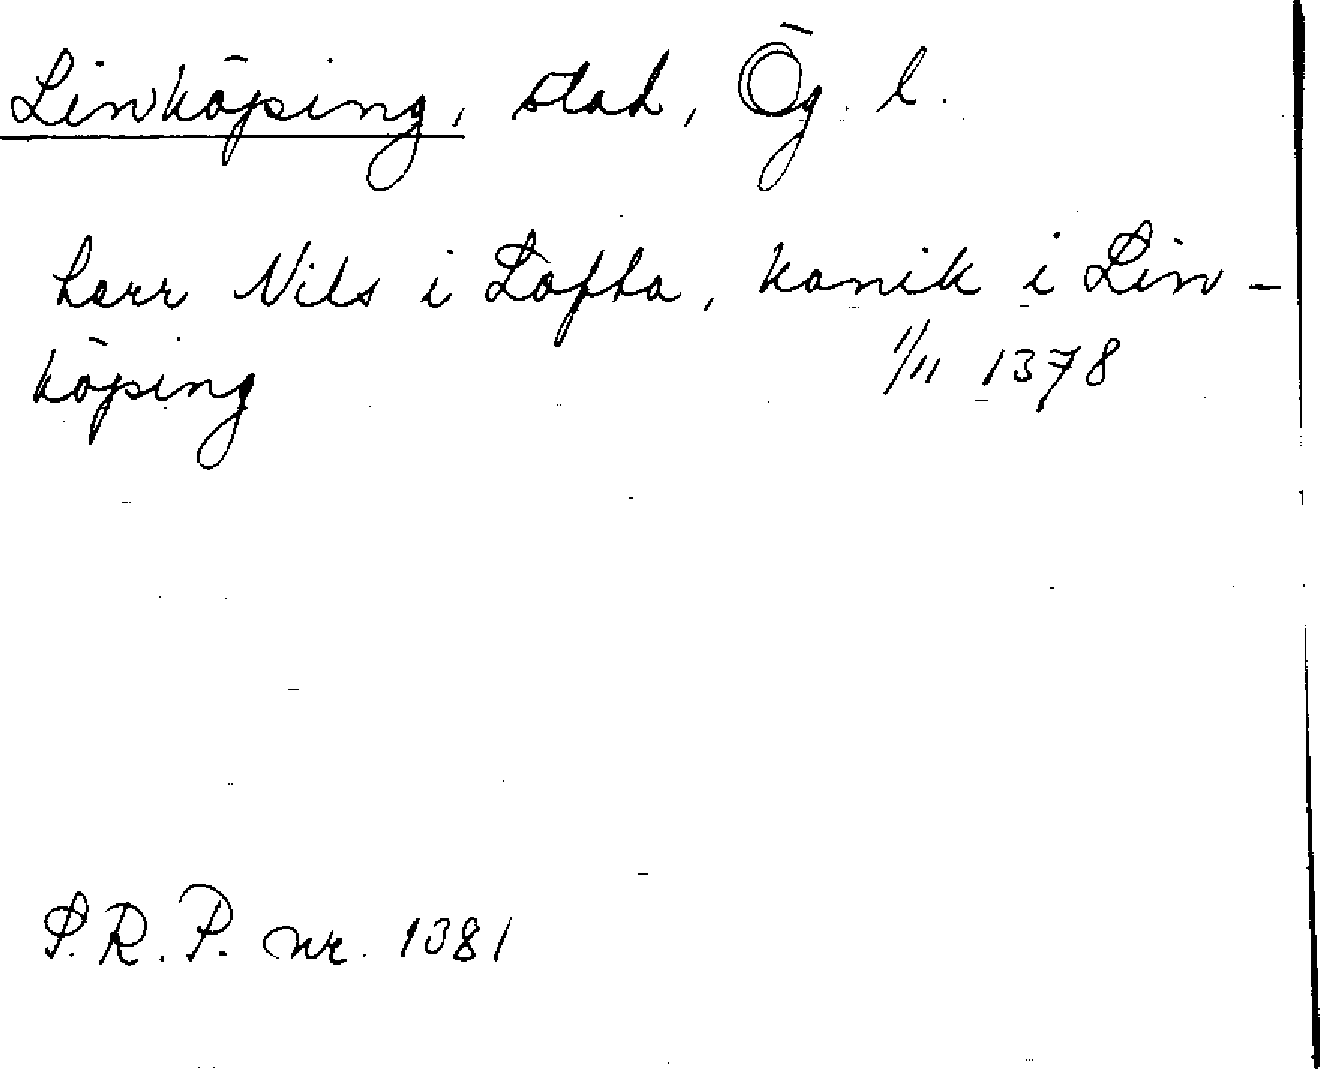 Linköping, stad, Ög. l.
herr Nils i Lofta, kanik i Lin-
köping 1/11 1378
S.R.P. nr. 1381